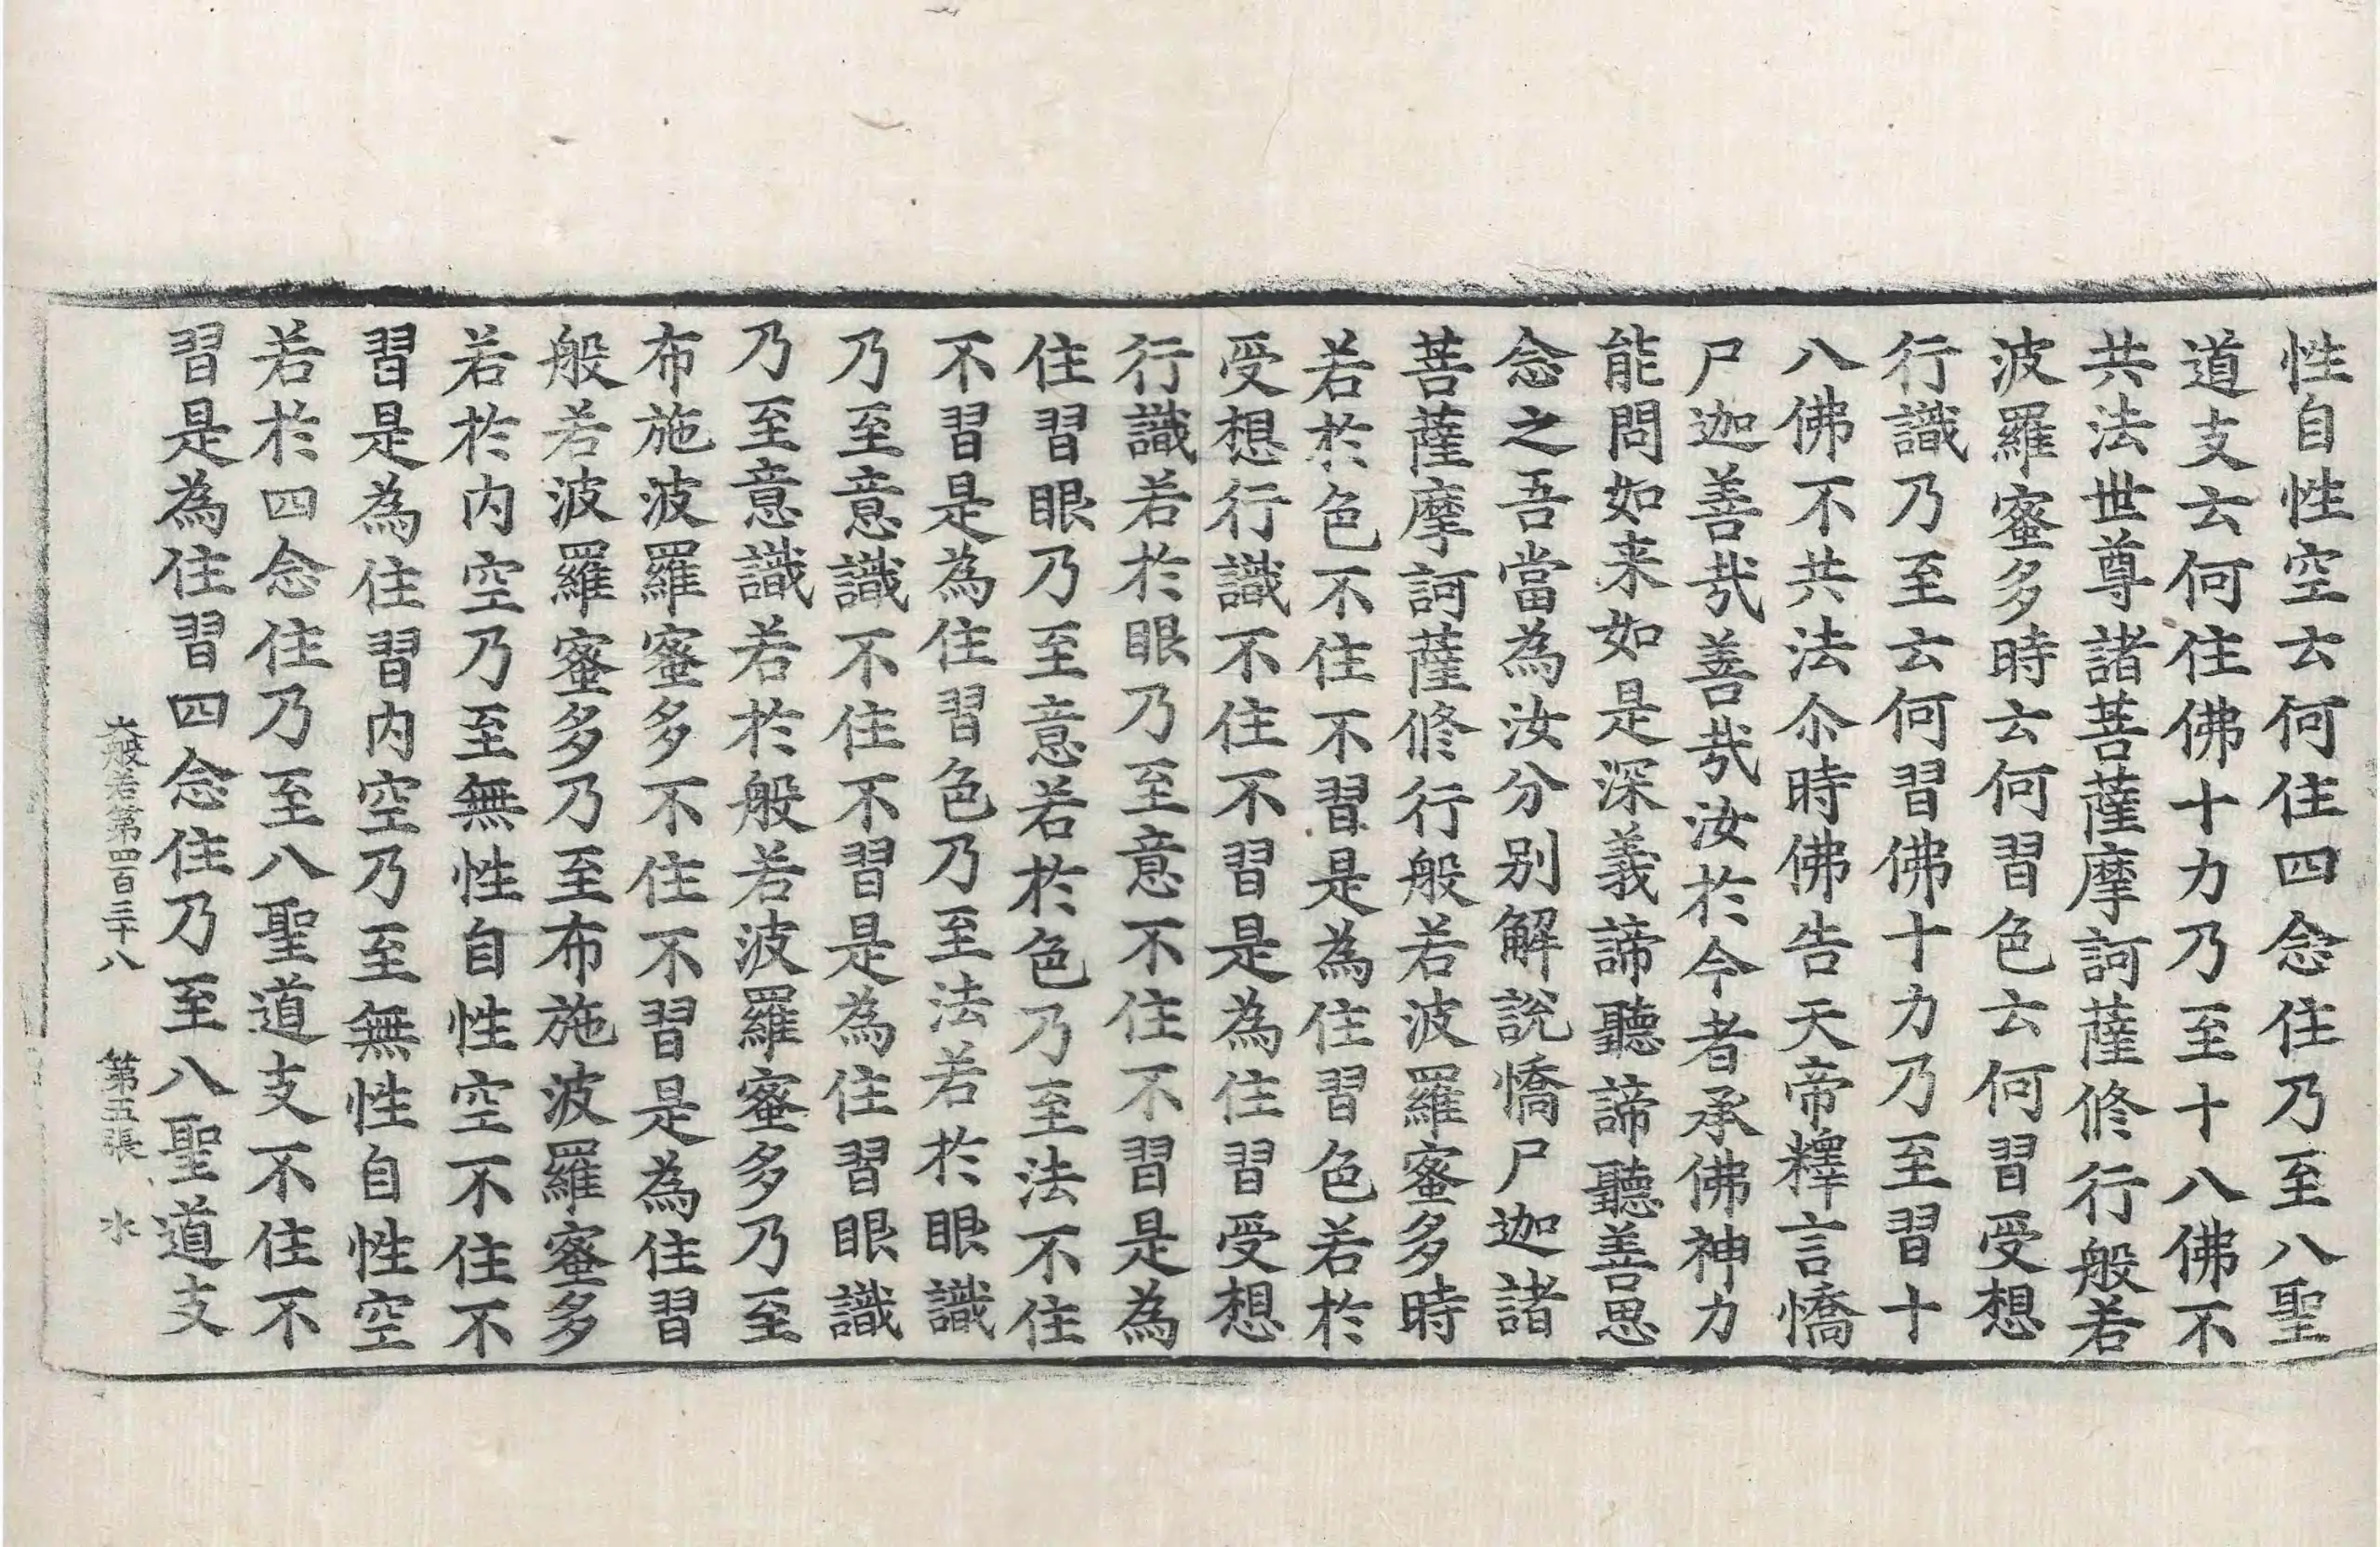 性自性空云何住四念住乃至八聖
道支云何住佛十力乃至十八佛不
共法世尊諸菩薩摩訶薩修行般若
波羅蜜多時云何習色云何習受想
行識乃至云何習佛十力乃至習十
八佛不共法尒時佛告天帝釋言憍
尸迦善㢤善㢤汝於今者承佛神力
能問如来如是深義諦聽諦聽善思
念之吾當為汝分别解說憍尸迦諸
菩薩摩訶薩修行般若波羅蜜多時
若於色不住不習是為住習色若於
受想行識不住不習是為住習受想
行識若於眼乃至意不住不習是為
住習眼乃至意若於色乃至法不住
不習是為住習色乃至法若於眼識
乃至意識不住不習是為住習眼識
乃至意識若於般若波羅蜜多乃至
布施波羅蜜多不住不習是為住習
般若波羅蜜多乃至布施波羅蜜多
若於内空乃至無性自性空不住不
習是為住習内空乃至無性自性空
若於四念住乃至八聖道支不住不
習是為住習四念住乃至八聖道支
大般若第四百三十八 第五張 水